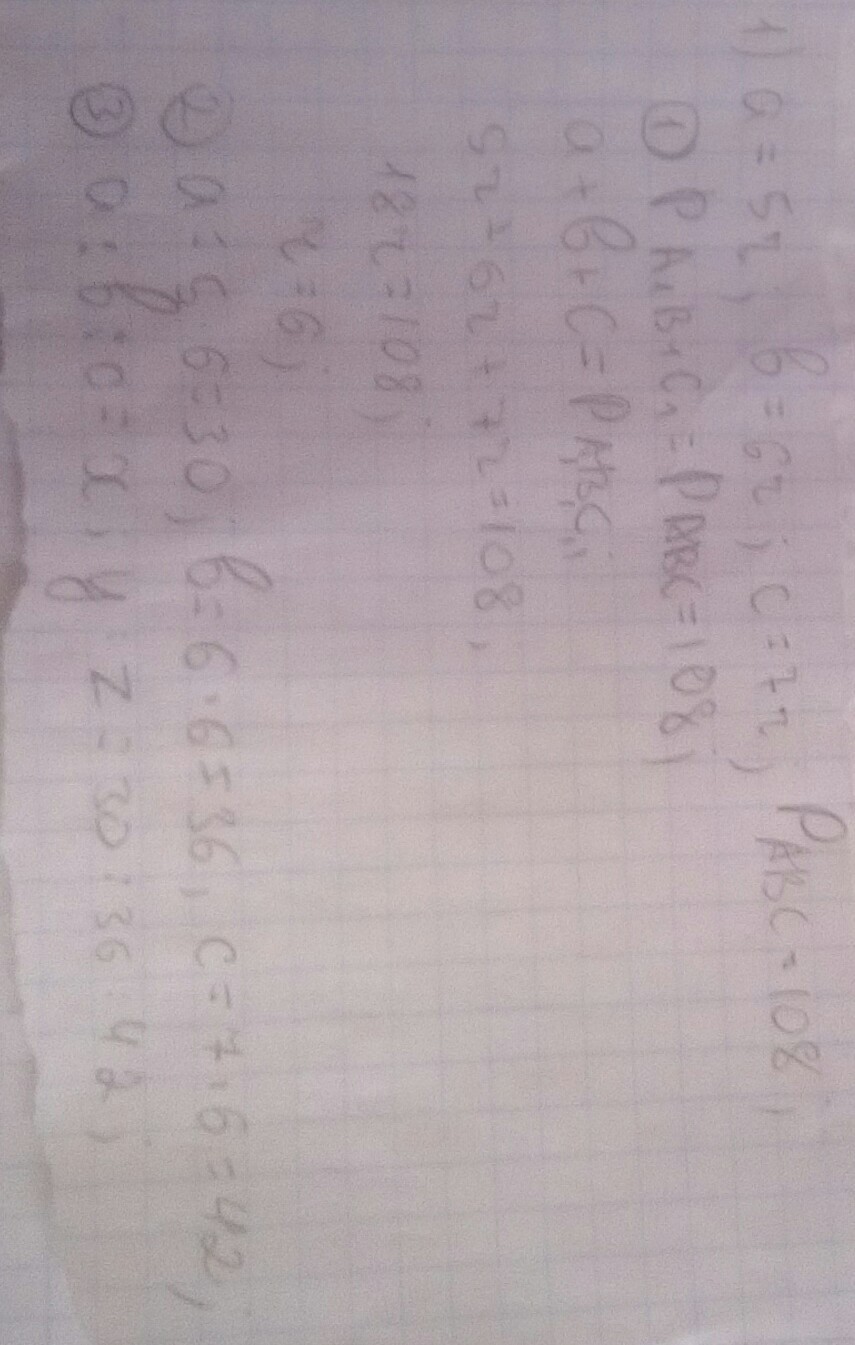 1) a = 5z, b = 6z; c = 7z, P ABC = 108;
① P A₁B₁C₁ = P ABC = 108;
a + b + c = P A₁B₁C₁;
5z = 6z + 7z = 108,
18z = 108;
z = 6;
② a = 5 6 = 30; b = 6 · 6 = 36, c = 7 · 6 = 42;
③ a : b : c = x : y : z = 30 : 36 : 42;